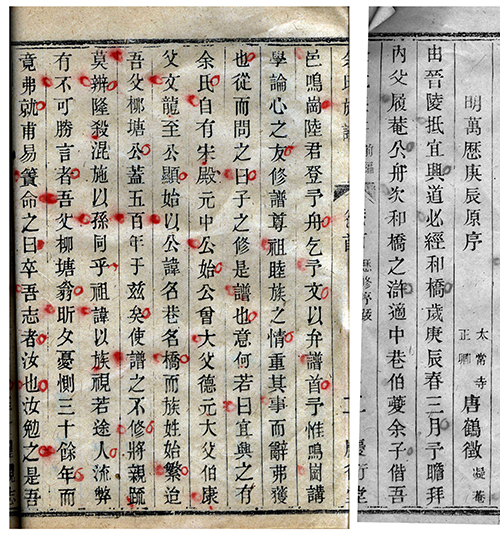 明萬歷庚辰原序
太常寺正卿唐鶴徵凝菴
由晉陵抵宜興道必經和橋歲庚辰春三月予瞻拜
內父履菴公舟次和橋之滸適中巷伯夔余子偕吾
慶行堂
邑鳴崗陸君登予舟乞予文以弁譜首予惟鳴崗講
學論心之友修譜尊祖睦族之情重其事而辭弗獲
也從而問之曰子之修是譜也意何若曰宜興之有
余氏自有宋殿元中公始公曾大父德元大父伯康
父文龍至公顯始以公諱名巷名橋而族姓始繁迨
吾父柳塘公蓋五百年于玆矣使譜之不修將親踈
莫辨隆殺混施以孫同乎祖諱以族視若途人流弊
有不可勝言者吾父柳塘翁昕夕憂惻三十餘年而
竟弗就甫易簀命之曰卒吾志者汝也汝勉之是吾